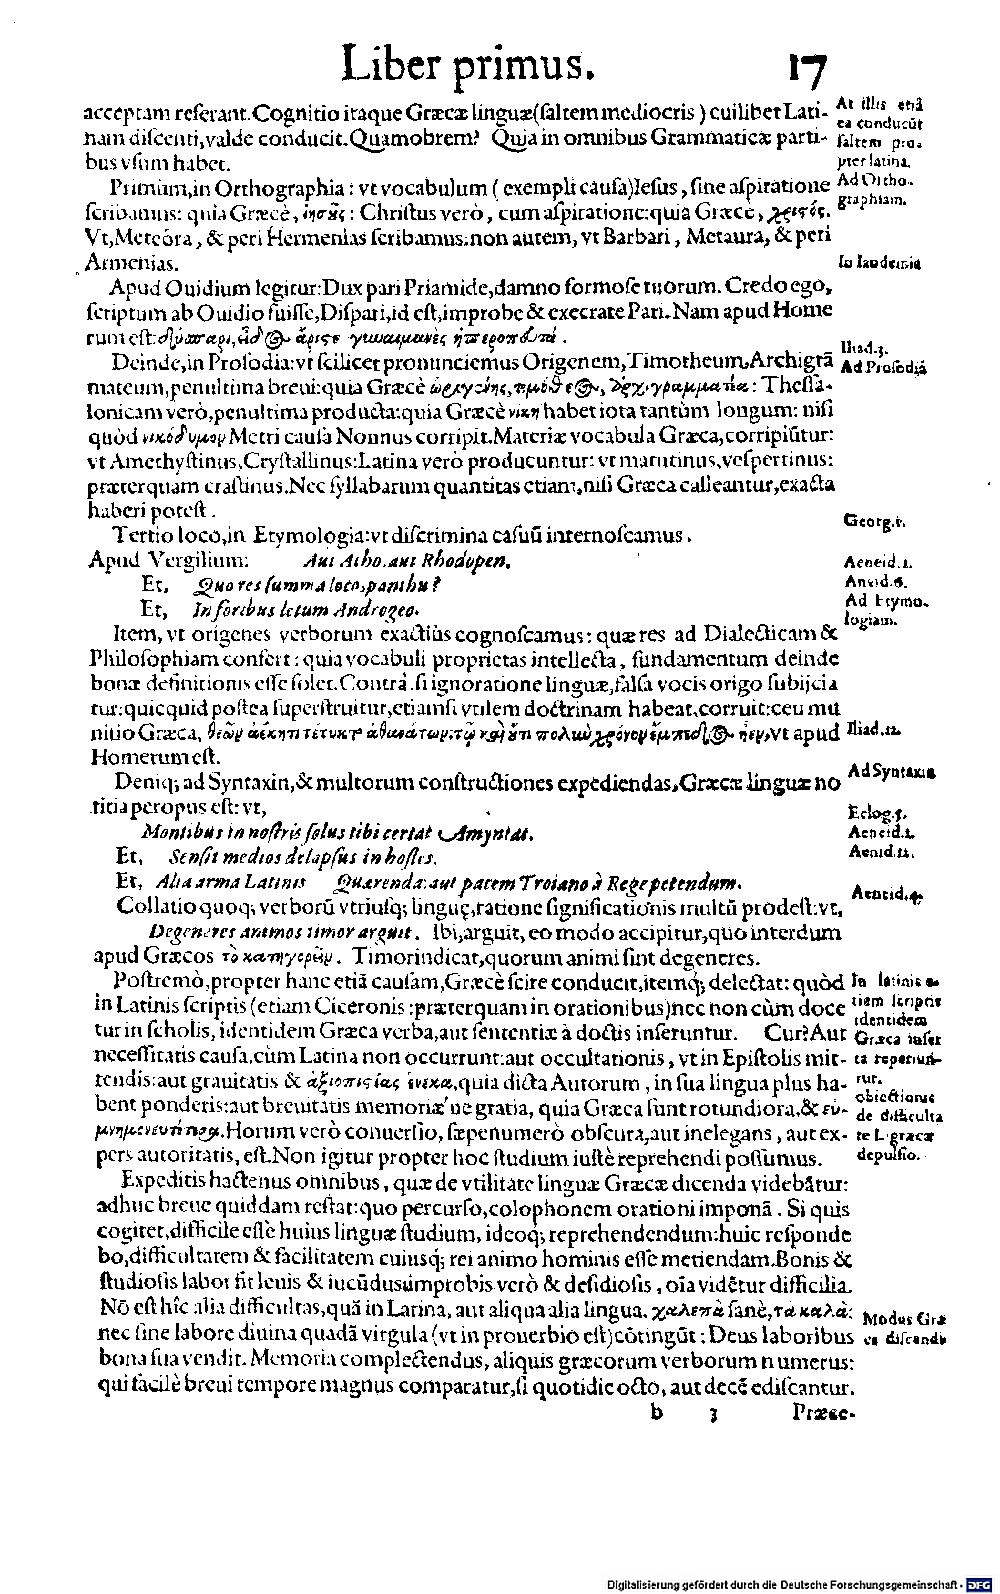 Liber primus. 17
acceptam referant. Cognitio itaque Græcæ linguæ (saltem mediocris) cuilibet Lati-
nam discenti, valde conducit. Quamobrem? Quia in omnibus Grammaticæ parti-
bus vsum habet.
At illis etiā
ea conducūt
saltem pro-
pter latina.
Primùm, in Orthographia: vt vocabulum (exempli causa) Iesus, sine aspiratione
scribamus: quia Græcè, ἰησοῦς: Christus verò, cum aspiratione: quia Græcè, χριστός.
Vt, Meteôra, & peri Hermenias scribamus: non autem, vt Barbari, Metaura, & peri
Armenias.
Ad Ortho-
graphiam.
Apud Ouidium legitur: Dux pari Priamide, damno formose tuorum. Credo ego,
scriptum ab Ouidio fuisse, Dispari, id est, improbe & execrate Pari. Nam apud Home
rum est: δύσπαρι, εἶδος ἄριστε γυναιμανὲς ἠπεροπευτά.
Iliad.3.
Deinde, in Prosodia: vt scilicet pronunciemus Origenem, Timotheum, Archigrā
mateum, penultima breui: quia Græcè ὠριγένης, τιμόθεος, ἀρχιγραμματέα: Thessa-
lonicam verò, penultima producta: quia Græcè νίκη habet iota tantùm longum: nisi
quòd νικόδημον Metri causa Nonnus corripit. Materiæ vocabula Græca, corripiūtur:
vt Amethystinus, Crystallinus: Latina verò producuntur: vt matutinus, vespertinus:
præterquam crastinus. Nec syllabarum quantitas etiam, nisi Græca calleantur, exacta
haberi potest.
Ad Prosodiā
Tertio loco, in Etymologia: vt discrimina casuū internoscamus.
Apud Vergilium: Aut Atho, aut Rhodopen.
Et, Quo res summa loco, panthu?
Et, In foribus letum Androgeo.
Georg.1.
Aeneid.2.
Aneid.6.
Ad Etymo-
logiam.
Item, vt origenes verborum exactiùs cognoscamus: quæ res ad Dialecticam &
Philosophiam confert: quia vocabuli proprietas intellecta, fundamentum deinde
bonæ definitionis esse solet. Contrà, si ignoratione linguæ, falsa vocis origo subijcia
tur: quicquid postea superstruitur, etiamsi vtilem doctrinam habeat, corruit: ceu mu
nitio Græca, θεῶν ἀέκητι τέτυκτο ἀθανάτων: τῷ καὶ ὅτι πολιὼ χρόνον ἔμπεδος ἦεν, Vt apud
Homerum est.
Iliad.12.
Deniq; ad Syntaxin, & multorum constructiones expediendas, Græcæ linguæ no
titia peropus est: vt,
Ad Syntaxin
Montibus in nostris solus tibi certat Amyntas.
Et, Sensit medios delapsus in hostes.
Et, Alia arma Latinis Quærenda: aut pacem Troiano à Rege petendum.
Eclog.5.
Aeneid.2.
Aenid.11.
Collatio quoq; verborū vtriusq; linguę, ratione significationis multū prodest: vt,
Degeneres animos timor arguit. Ibi, arguit, eo modo accipitur, quo interdum
apud Græcos τὸ κατηγορεῖν. Timor indicat, quorum animi sint degeneres.
Aeneid.4.
Postremò, propter hanc etiā causam, Græcè scire conducit, itemq; delectat: quòd
in Latinis scriptis (etiam Ciceronis: præterquam in orationibus) nec non cùm doce
tur in scholis, identidem Græca verba, aut sententiæ à doctis inseruntur. Cur? Aut
necessitatis causa, cùm Latina non occurrunt: aut occultationis, vt in Epistolis mit-
tendis: aut grauitatis & ἀξιοπιστίας ἕνεκα, quia dicta Autorum, in sua lingua plus ha-
bent ponderis: aut breuitatis memoriæ'ue gratia, quia Græca sunt rotundiora, & εὐ-
μνημονευτότερα. Horum verò conuersio, sæpenumerò obscura, aut inelegans, aut ex-
pers autoritatis, est. Non igitur propter hoc studium iustè reprehendi possumus.
In latinis e-
tiam scriptis
identidem
Græca inser
ta reperiun-
tur.
obiectionis
de difficulta
te L. græcæ
depulsio.
Expeditis hactenus omnibus, quæ de vtilitate linguæ Græcæ dicenda videbātur:
adhuc breue quiddam restat: quo percurso, colophonem orationi imponā. Si quis
cogitet, difficile esse huius linguæ studium, ideoq; reprehendendum: huic responde
bo, difficultatem & facilitatem cuiusq; rei animo hominis esse metiendam. Bonis &
studiosis labor fit leuis & iucūdus: improbis verò & desidiosis, oīa vidētur difficilia.
Nō est hîc alia difficultas, quā in Latina, aut aliqua alia lingua. χαλεπὰ sanè, τὰ καλὰ:
nec sine labore diuina quadā virgula (vt in prouerbio est) cōtingūt: Deus laboribus
bona sua vendit. Memoria complectendus, aliquis græcorum verborum numerus:
qui facilè breui tempore magnus comparatur, si quotidie octo, aut decē ediscantur.
Modus Græ
ca discendi
b 3 Præce-
Digitalisierung gefördert durch die Deutsche Forschungsgemeinschaft - DFG